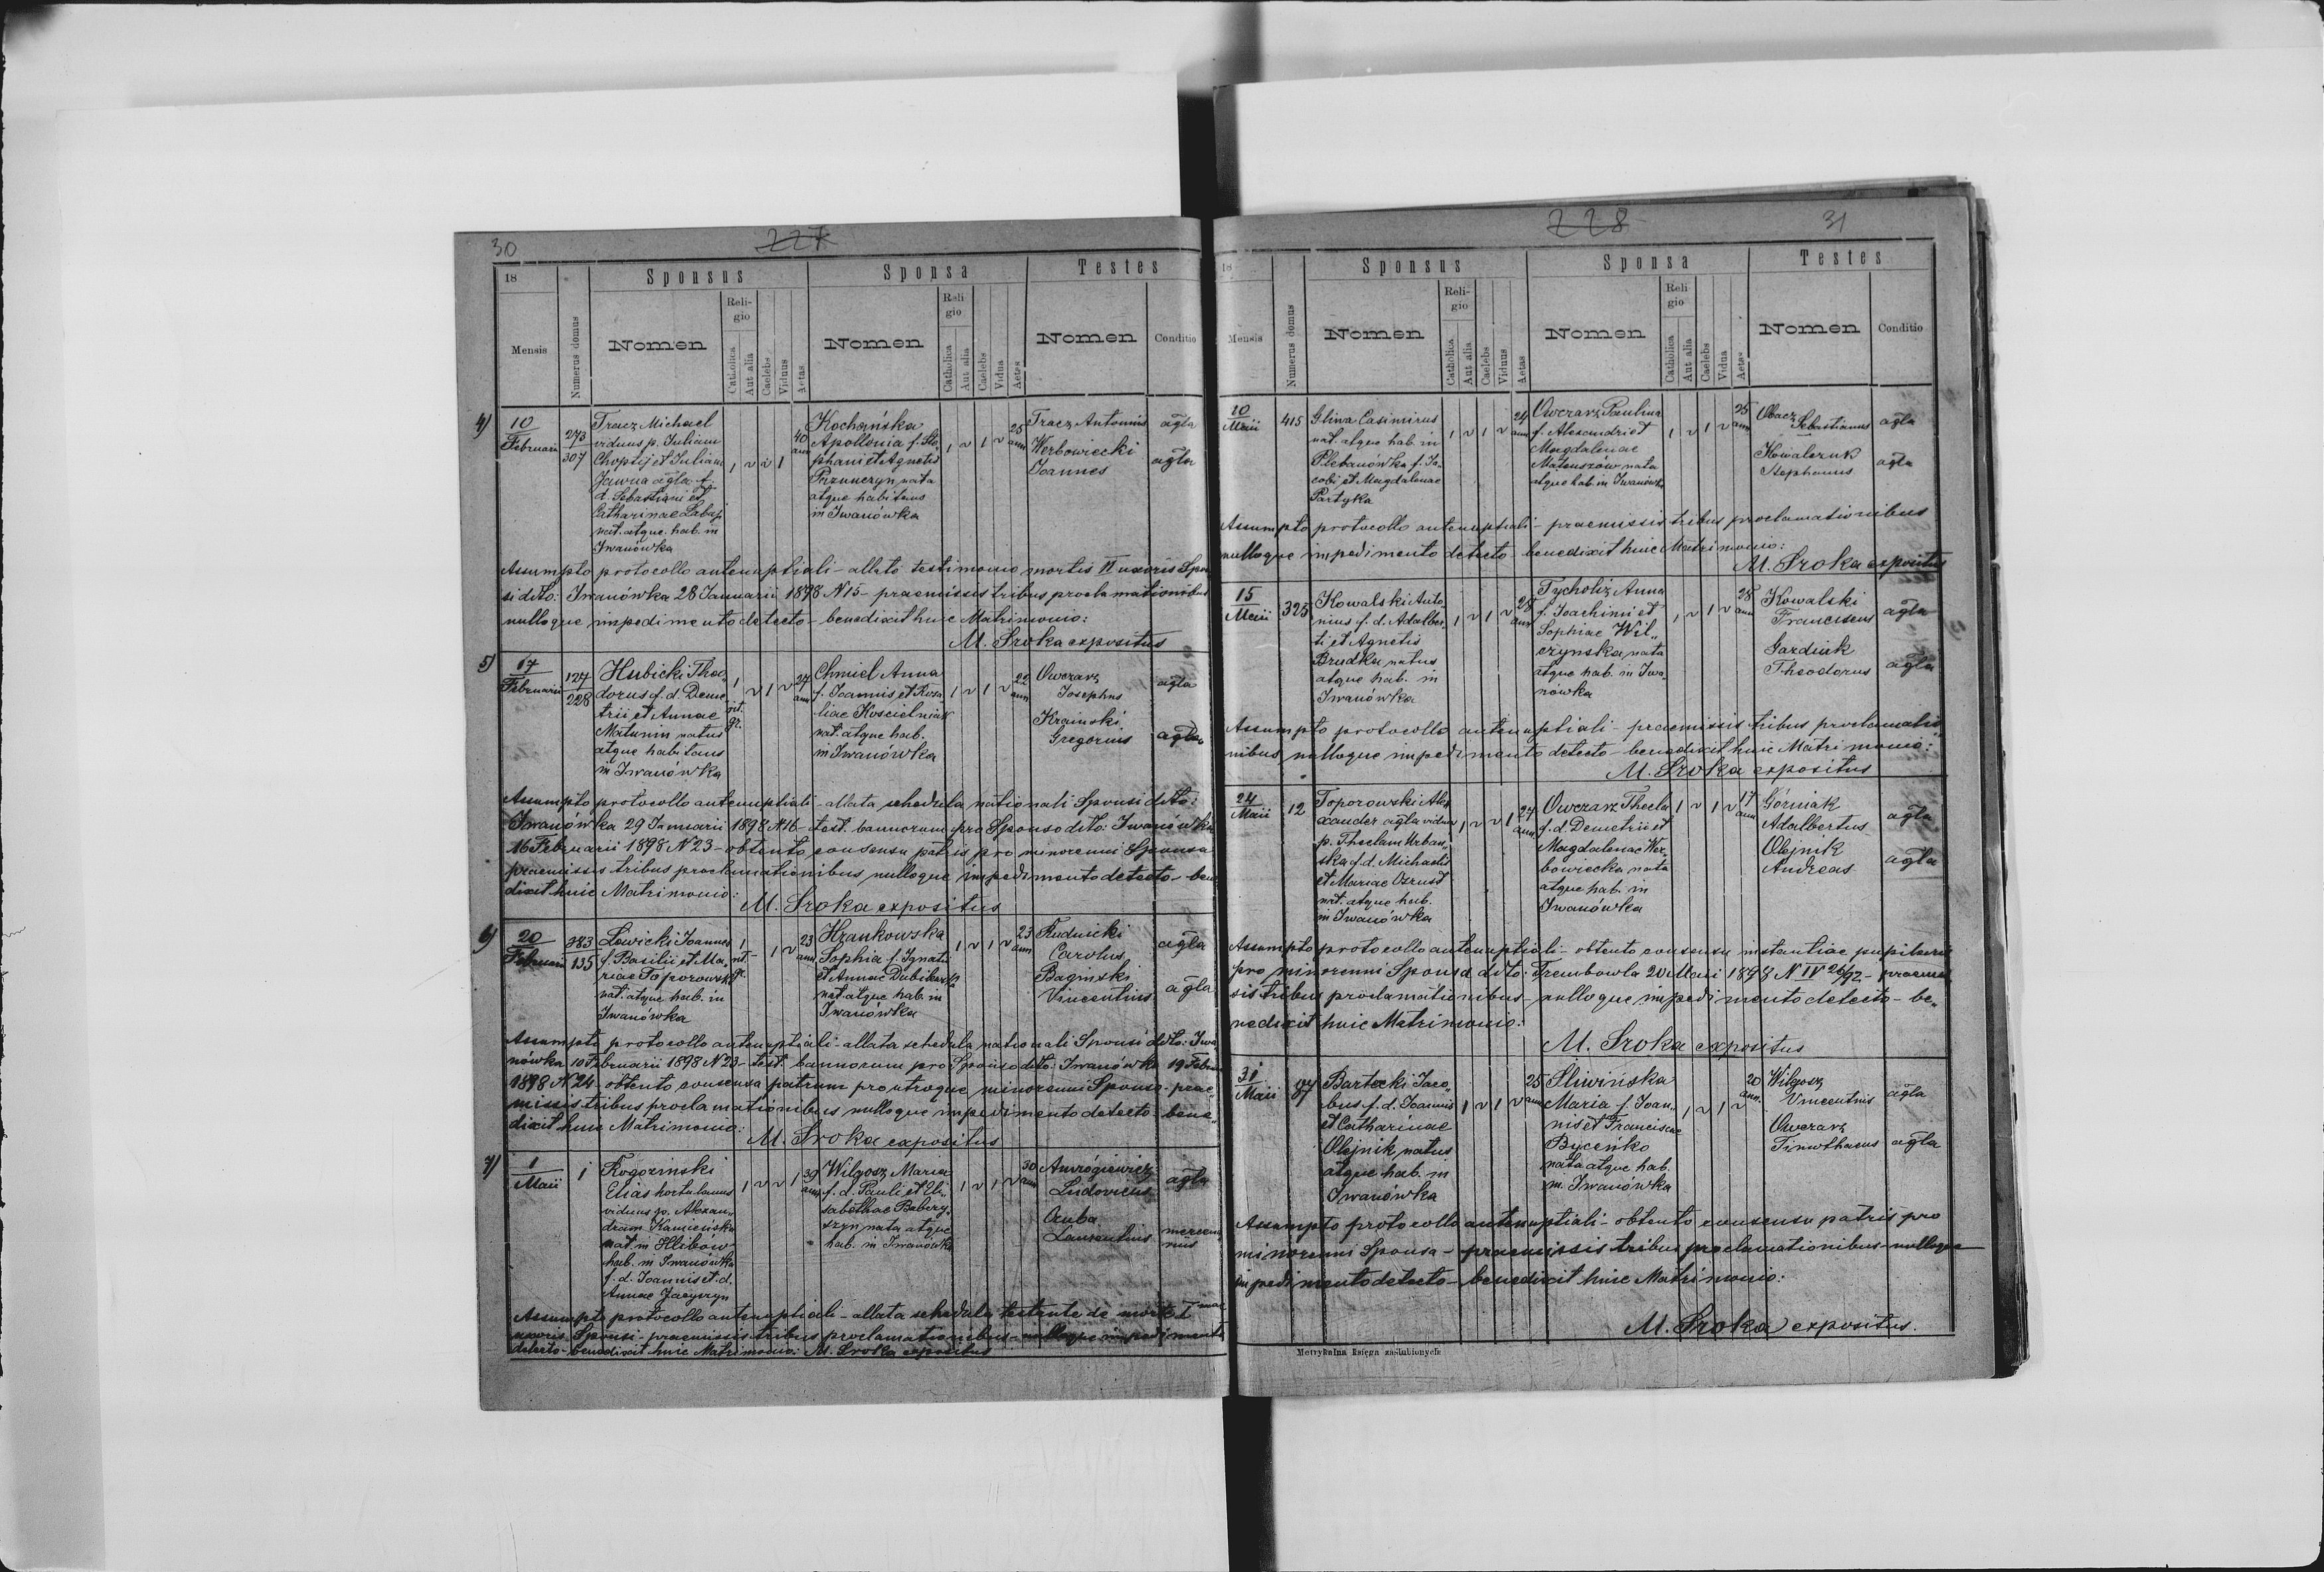 30
227
18
Sponsus
Sponsa
Testes
Mensis
Numerus domus
Nomen
Religio
Catholica
Aut alia
Caelebs
Viduus
Aetas
Nomen
Religio
Catholica
Aut alia
Caelebs
Vidua
Aetas
Nomen
Conditio
4)
10
Februarii
273
307
Tracz Michael
viduus p. Juliam
Choptij et Juliam
Jawna agla f.
d. Sebastiani et
Catharinae Labaj
nat. atque hab. in
Iwanówka
1 ~ ~ 1
40
ann
Kochańska
Apollonia f. Ste
phani et Agnetis
nata
atque habitans
in Iwanówka
1 ~ 1 ~
25
ann
Tracz Antonius
agla
Werbowiecki
Joannes
agla
Assumpto protocollo antenuptiali - allato testimonio mortis II uxoris Spon
si dtto: Iwanówka 28 Januarii 1898 N 15 - praemissis tribus proclamationibus
nulloque impedimento detecto - benedixit huic Matrimonio:
M. Sroka expositus
5)
17
Februarii
127
228
Hubicki Theo
dorus f. d. Deme
trii et Annae
Maturin natus
atque habitans
in Iwanówka
1
rit.
gr.
~ 1 ~
27
ann
Chmiel Anna
f. Joannis et Roza
liae Kościelniak
nat. atque hab.
in Iwanówka
1 ~ 1 ~
22
ann
Owczarz
Josephus
agla
Krainski
Gregorius
agla
Assumpto protocollo antenuptiali - allata schedula nationali Sponsi dtto:
Iwanówka 29 Januarii 1898 N 16 - test. bannorum pro Sponso dtto: Iwanówka
16 Februarii 1898 N 23 - obtento consensu patris pro minorenni Sponsa
praemissis tribus proclamationibus nulloque impedimento detecto - bene
dixit huic Matrimonio:
M. Sroka expositus
6)
20
Februarii
383
135
Lewicki Joannes
f. Basilii et Ma-
riae Toporowska
nat. atque hab. in
Iwanówka
1
rit.
gr.
- 1 ~
23
ann
Hrankowska
Sophia f. Ignatii
et Annae
nat. atque hab. in
Iwanówka
1 ~ 1 ~
23
ann
Rudnicki
Carolus
agla
Baginski
Vincentius
agla
Assumpto protocollo antenuptiali - allata schedula nationali Sponsi dtto: Iwa
nówka 10 Februarii 1898 N 23 - test. bannorum pro Sponso dtto: Iwanówka 19 Februarii
1898 N 24 - obtento consensu patrum pro utroque minorenni Sponso - prae
missis tribus proclamationibus nulloque impedimento detecto - bene
dixit huic Matrimonio:
M. Sroka expositus
7)
1
Maii
1
Rogozinski
Elias hortulanus
viduus p. Alexan
dram Kamieńska
nat. in Hlibów
hab. in Iwanówka
f. d. Joannis et d.
Annae
1 ~ ~ 1
39
ann
Wilgosz Maria
f. d. Pauli et Eli
sabethae
nata atque
hab. in Iwanówka
1 ~ 1 ~
30
ann
Ludovicus
agla
Laurentius
mercen
rius
Assumpto protocollo antenuptiali - allata schedula testante de morte I mae
uxoris Sponsi - praemissis tribus proclamationibus - nulloque impedimento
detecto - benedixit huic Matrimonio: M. Sroka expositus
228
31
18
Sponsus
Sponsa
Testes
Mensis
Numerus domus
Nomen
Religio
Catholica
Aut alia
Caelebs
Viduus
Aetas
Nomen
Religio
Catholica
Aut alia
Caelebs
Vidua
Aetas
Nomen
Conditio
10
Maii
415
Glina Casimirus
nat. atque hab. in
Plebanówka f. Ja
cobi et Magdalenae
Partyka
1 ~ 1 ~
24
ann
Owczarz Paulina
f. Alexandri et
Magdalenae
Mateuszów nata
atque hab. in Iwanówka
1 ~ 1 ~
25
ann
Obacz
Sebastianus
agla
Kowalczuk
Stephanus
agla
Assumpto protocollo antenuptiali - praemissis tribus proclamationibus
nulloque impedimento detecto - benedixit huic Matrimonio:
M. Sroka expositus
15
Maii
325
Kowalski Anto
nius f. d. Adalber
ti et Agnetis
Brudka natus
atque hab. in
Iwanówka
1 ~ 1 ~
28
ann
Tycholiz Anna
f. Joachimi et
Sophiae Wil
czynska nata
atque hab. in Iwa
nówka
1 ~ 1 ~
28
ann
Kowalski
Franciscus
agla
Theodorus
agla
Assumpto protocollo antenuptiali - praemissis tribus proclamatio
nibus nulloque impedimento detecto - benedixit huic Matrimonio:
M. Sroka expositus
24
Maii
12
Toporowski Ale
xander agla viduus
p. Theclam Urban
ska f. d. Michaelis
et Mariae
nat. atque hab.
in Iwanówka
1 ~ ~ 1
27
ann
Owczarz Thecla
f. d. Demetrii et
Magdalenae Wer
bowiecka nata
atque hab. in
Iwanówka
1 ~ 1 ~
17
ann
Górniak
Adalbertus
agla
Olejnik
Andreas
agla
Assumpto protocollo antenuptiali - obtento consensu instantiae pupilaris
pro minorenni Sponsa dtto: Trembowla 20 Maii 1898 N IV 26/92 - praemis
sis tribus proclamationibus - nulloque impedimento detecto - be
nedixit huic Matrimonio:
M. Sroka expositus
31
Maii
87
Bartecki Jaco
bus f. d. Joannis
et Catharinae
Olejnik natus
atque hab. in
Iwanówka
1 ~ 1 ~
25
ann
Sliwińska
Maria f. Joan
nis et Franciscae
Byceńko
nata atque hab.
in Iwanówka
1 ~ 1 ~
20
ann.
Wilgosz
Vincentius
agla
Owczarz
Timothaeus
agla
Assumpto protocollo antenuptiali - obtento consensu patris pro
minorenni Sponsa - praemissis tribus proclamationibus - nulloque
impedimento detecto - benedixit huic Matrimonio:
M. Sroka expositus.
Metrykalna księga zaślubionych